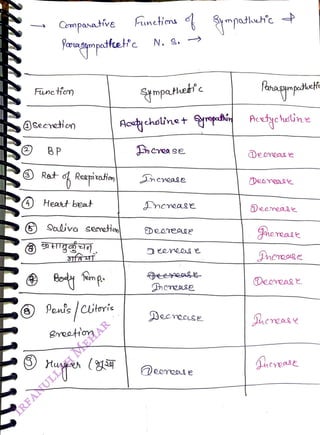 → Comparative Functions of Sympathetic →
Parasympathetic N. S. →
Function Sympathetic Parasympathetic
① Secretion Acetycholine + Sympathin Acetycholine
② BP Increase Decrease
③ Rat of Respiration Increase Decrease
④ Heart beat Increase Decrease
⑤ Saliva secretion Decrease Increase
⑥ क्रमाकुंचन Decrease Increase
गतियाँ
⑦ Body Temp. Decrease Decrease
Increase
⑧ Penis / Clitoris Decrease Increase
Erection
⑨ Hunger (भूख Decrease Increase
IRFANULLAH MEHAR